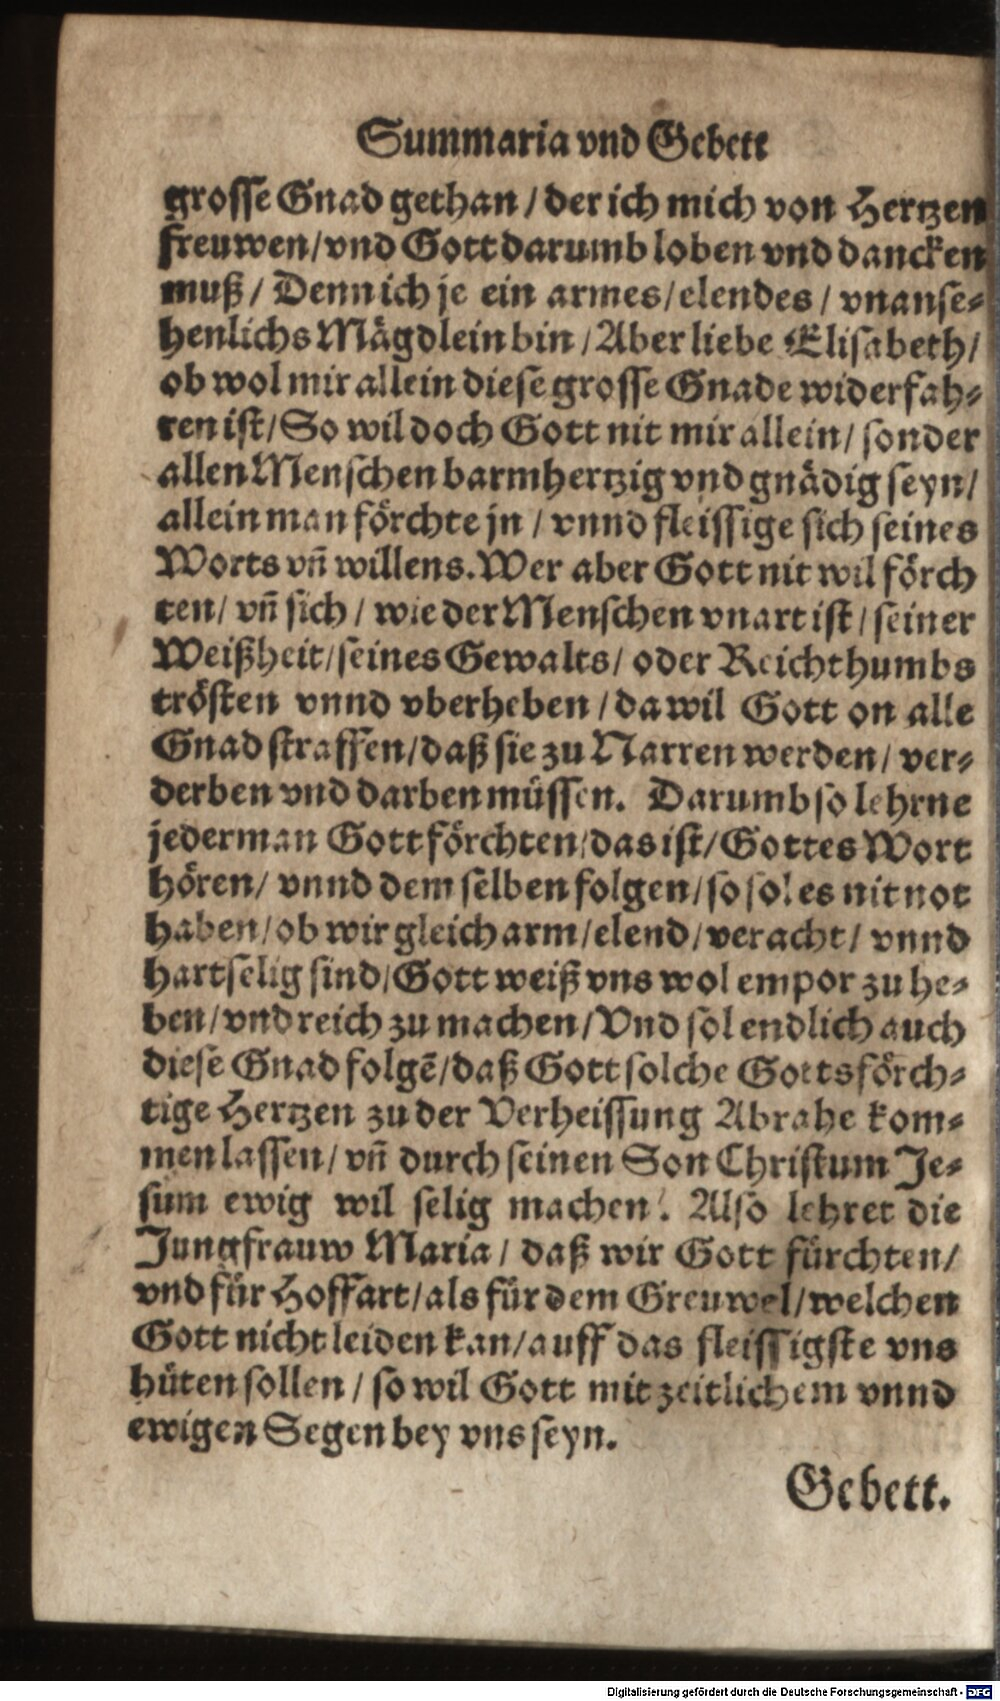 Summaria vnd Gebett
grosse Gnad gethan / der ich mich von Hertzen
freuwen / vnd Gott darumb loben vnd dancken
muß / Denn ich je ein armes / elendes / vnanse-
henlichs Mägdlein bin / Aber liebe Elisabeth /
ob wol mir allein diese grosse Gnade widerfah-
ren ist / So wil doch Gott nit mir allein / sonder
allen Menschen barmhertzig vnd gnädig seyn /
allein man förchte jn / vnnd fleissige sich seines
Worts vñ willens. Wer aber Gott nit wil förch
ten / vñ sich / wie der Menschen vnart ist / seiner
Weißheit / seines Gewalts / oder Reichthumbs
trösten vnnd vberheben / da wil Gott on alle
Gnad straffen / daß sie zu Narren werden / ver-
derben vnd darben müssen. Darumb so lehrne
jederman Gott förchten / das ist / Gottes Wort
hören / vnnd dem selben folgen / so sol es nit not
haben / ob wir gleich arm / elend / veracht / vnnd
hartselig sind / Gott weiß vns wol empor zu he-
ben / vnd reich zu machen / Vnd sol endlich auch
diese Gnad folgẽ / daß Gott solche Gottsförch-
tige Hertzen zu der Verheissung Abrahe kom-
men lassen / vñ durch seinen Son Christum Je-
sum ewig wil selig machen. Also lehret die
Jungfrauw Maria / daß wir Gott fürchten /
vnd für Hoffart / als für dem Greuwel / welchen
Gott nicht leiden kan / auff das fleissigste vns
hüten sollen / so wil Gott mit zeitlichem vnnd
ewigen Segen bey vns seyn.
Gebett.
Digitalisierung gefördert durch die Deutsche Forschungsgemeinschaft - DFG